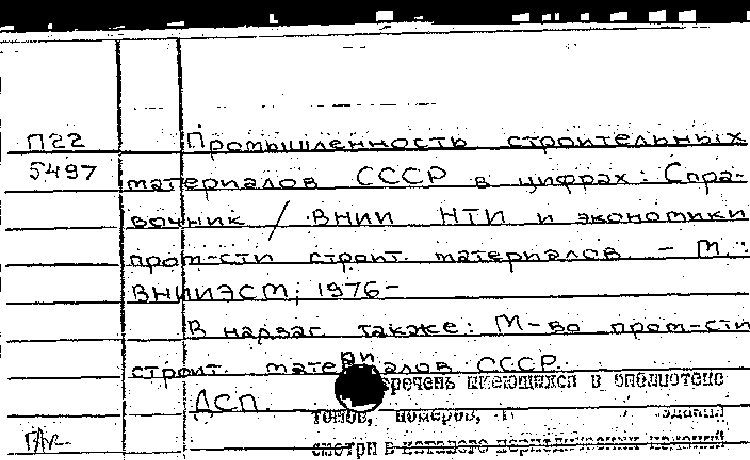 П22 Промышленность строительных
5497 материалов СССР в цифрах: Спра-
вочник / ВНИИ НТИ и экономики
пром-сти строит. материалов. - М.:
ВНИИЭСМ, 1976-
В надзаг. также: М-во пром-сти
строит. материалов СССР.
ДСП.
перечень имеющихся в библиотеке
томов, номеров, издания
смотри в каталоге периодических изданий